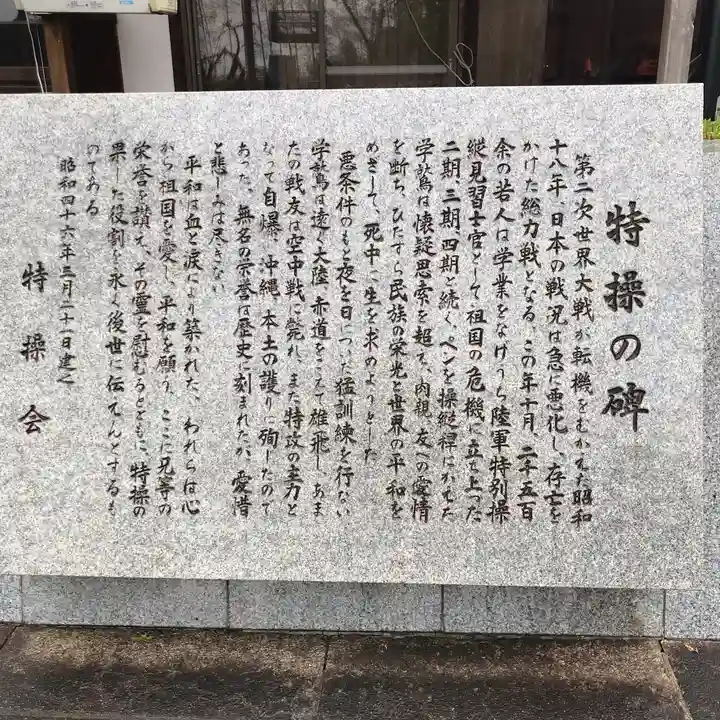 特操の碑
第二次世界大戦が転機をむかえた昭和
十八年、日本の戦況は急に悪化し、存亡を
かけた総力戦となる。この年十月、二千五百
余の若人は学業をなげうち陸軍特別操
縦見習士官として祖国の危機に立ち上った
二期、三期、四期と続く、ペンを操縦桿にかえた
学鷲は懐疑思索を超え、肉親、友への愛情
を断ち、ひたすら民族の栄光と世界の平和を
めざして、死中に生を求めようとした
悪条件のもと夜を日についだ猛訓練を行ない
学鷲は遠く大陸、赤道をこえて雄飛し、あま
たの戦友は空中戦に斃れ、また特攻の主力と
なって自爆、沖縄、本土の護りに殉じたので
あった、無名の栄誉は歴史に刻まれたが、愛惜
と悲しみは尽きない
平和は血と涙により築かれた、われらは心
から祖国を愛し、平和を願う、ここに兄等の
栄誉を讃え、その霊を慰むるとともに、特操の
果した役割を永く後世に伝えんとするも
のである
昭和四十六年三月二十一日建之
特操会